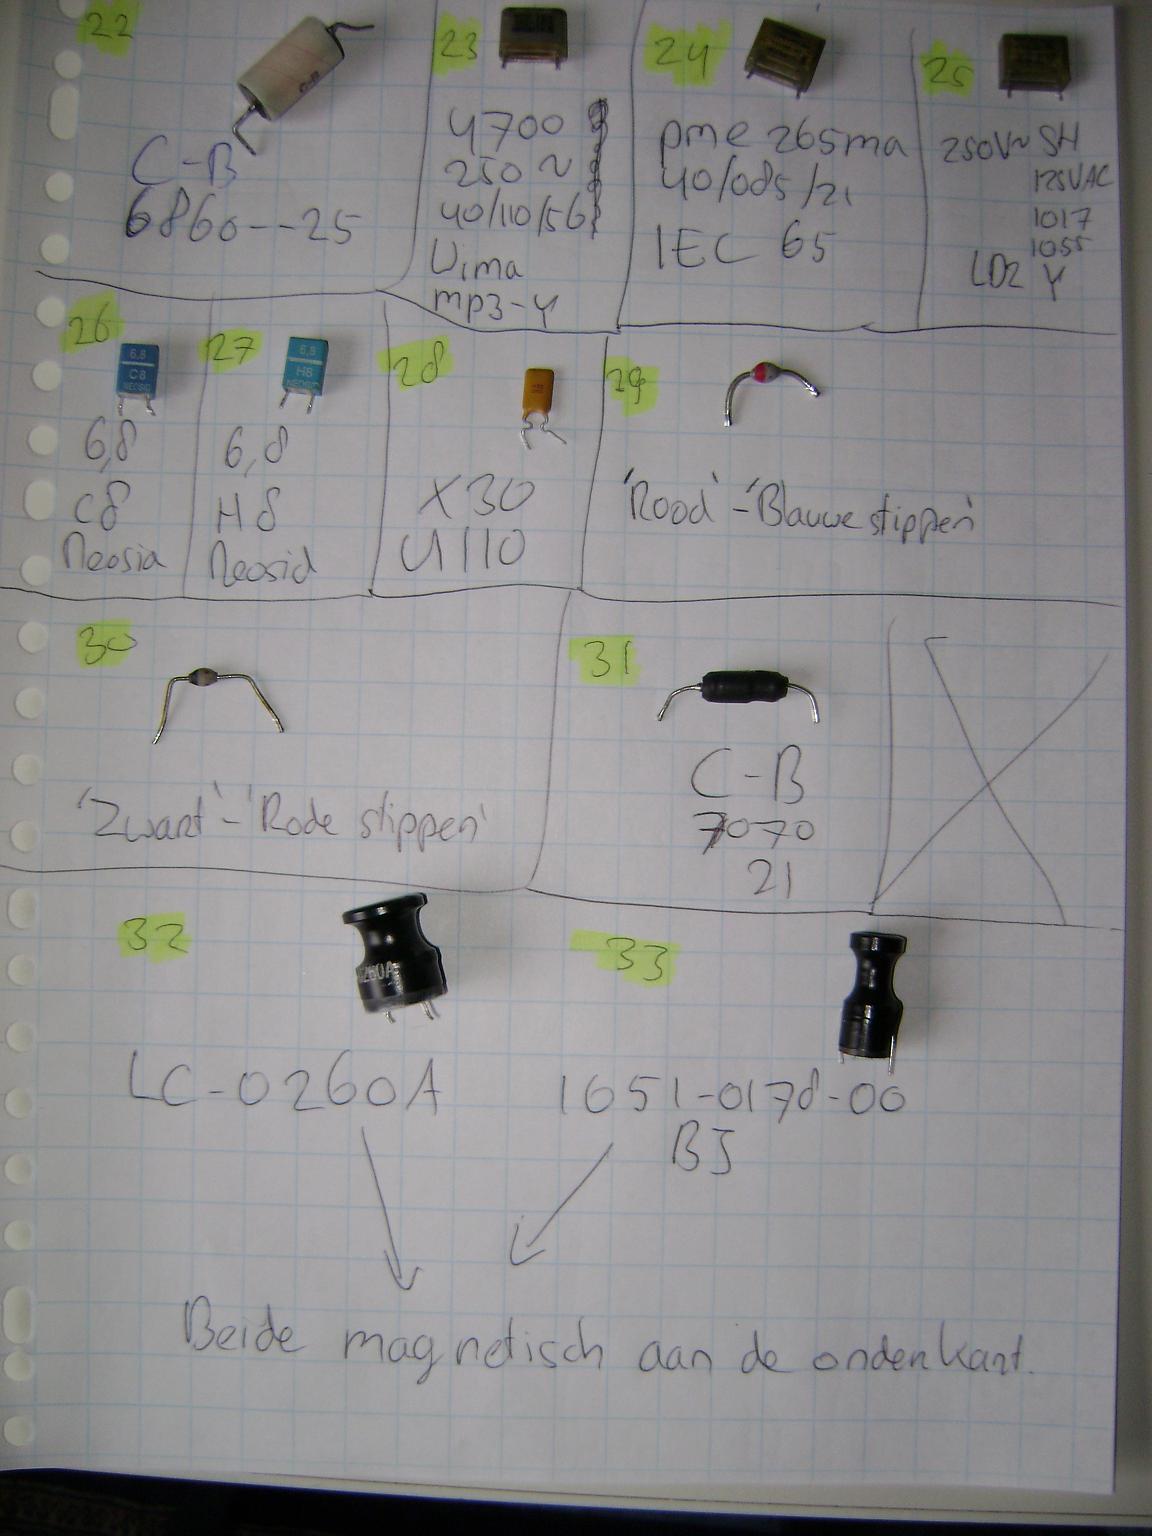 22
C-B
6860--25
23
4700
250 ~
40/110/56
Wima
mp3-Y
24
pme 265ma
40/085/21
IEC 65
25
250V~ SH
125VAC
1017
1055
LD2 Y
26
6,8
C8
NEOSID
6,8
C8
Neosia
27
6,8
H8
NEOSID
6,8
H8
Neosid
28
X30
U110
29
'Rood' - 'Blauwe stippen'
30
'Zwart' - 'Rode stippen'
31
C-B
7070
21
32
LC-0260A
33
1651-0178-00
BJ
Beide magnetisch aan de onderkant.